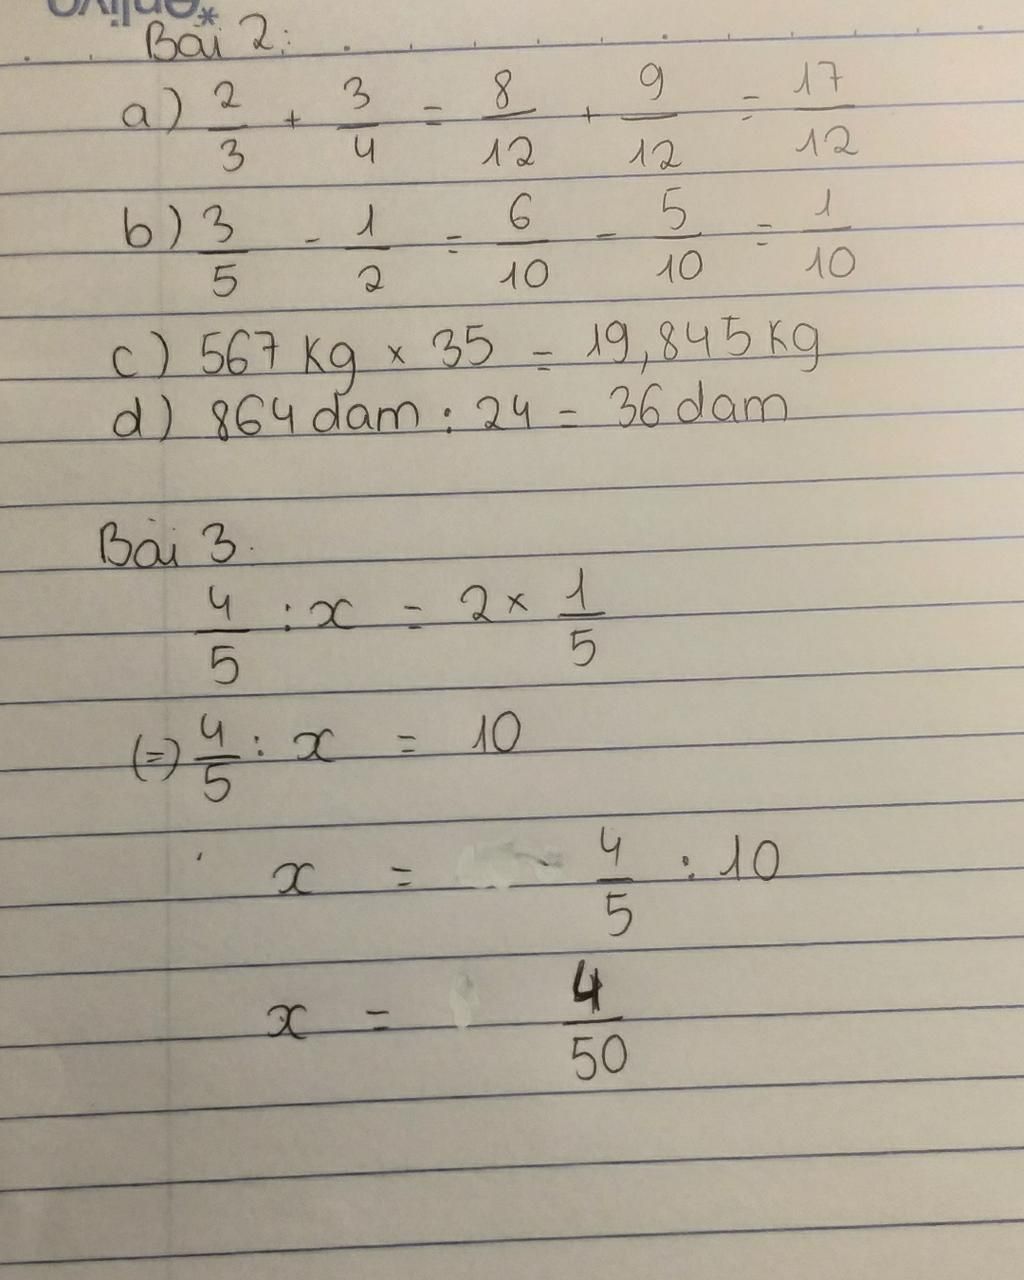 Bài 2:
a) 2/3 + 3/4 = 8/12 + 9/12 = 17/12
b) 3/5 - 1/2 = 6/10 - 5/10 = 1/10
c) 567 kg × 35 = 19,845 kg
d) 864 dam : 24 = 36 dam
Bài 3.
4/5 : x = 2 × 1/5
(=) 4/5 : x = 10
x = 4/5 : 10
x = 4/50